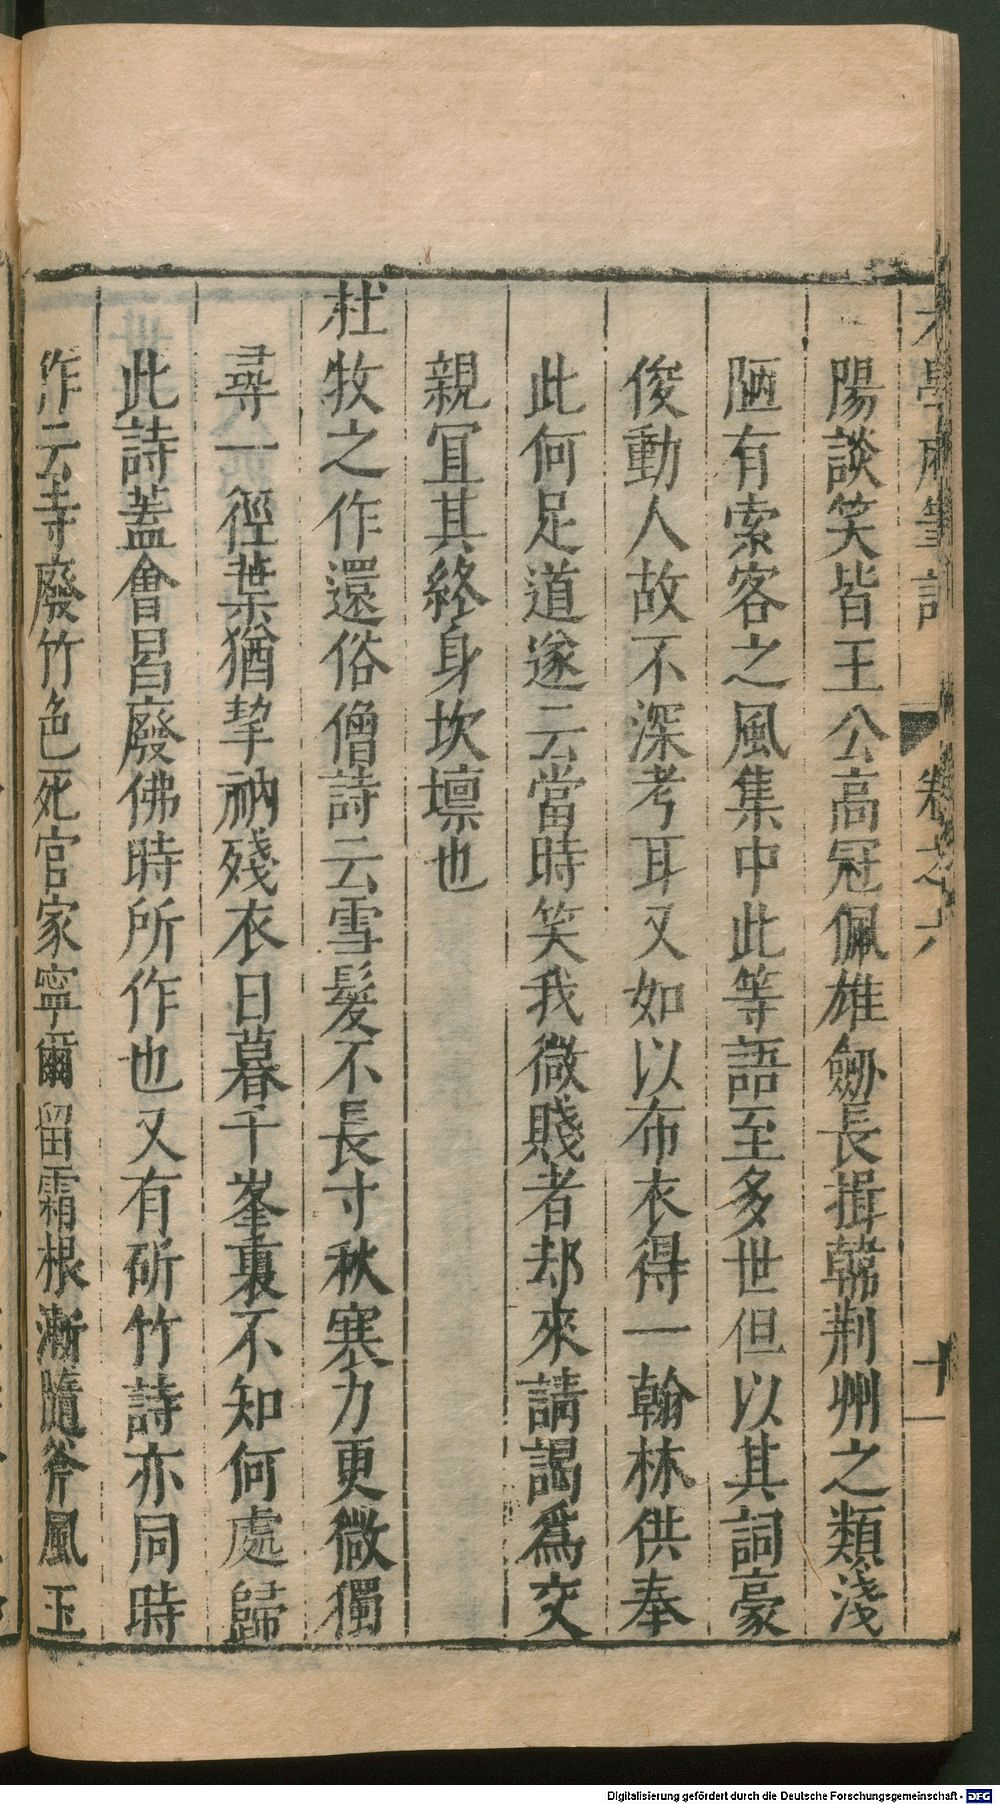 老學庵筆記 卷之六 十一
陽談笑皆王公高冠佩雄劒長揖韓荆州之類淺
陋有索客之風集中此等語至多世但以其詞豪
俊動人故不深考耳又如以布衣得一翰林供奉
此何足道遂云當時笑我微賤者却來請謁爲交
親冝其終身坎壈也
杜牧之作還俗僧詩云雪髮不長寸秋寒力更微獨
尋一徑葉猶挈衲殘衣日暮千峯裏不知何處歸
此詩蓋會昌廢佛時所作也又有斫竹詩亦同時
作云寺廢竹色死官家寧爾留霜根漸隨斧風玉
Digitalisierung gefördert durch die Deutsche Forschungsgemeinschaft - DFG